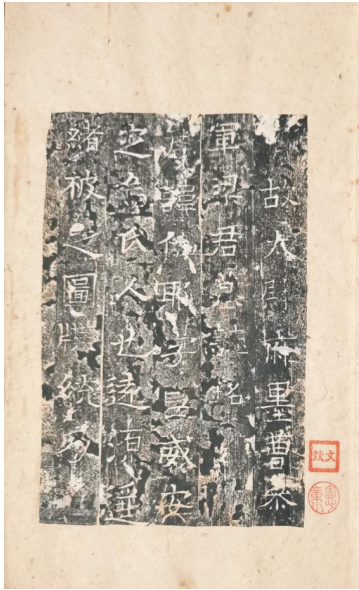 故大尉府墨曹參
軍梁君墓誌銘
君諱伽耶字威安
定烏氏人也遠源遥
緒被之圖牒統